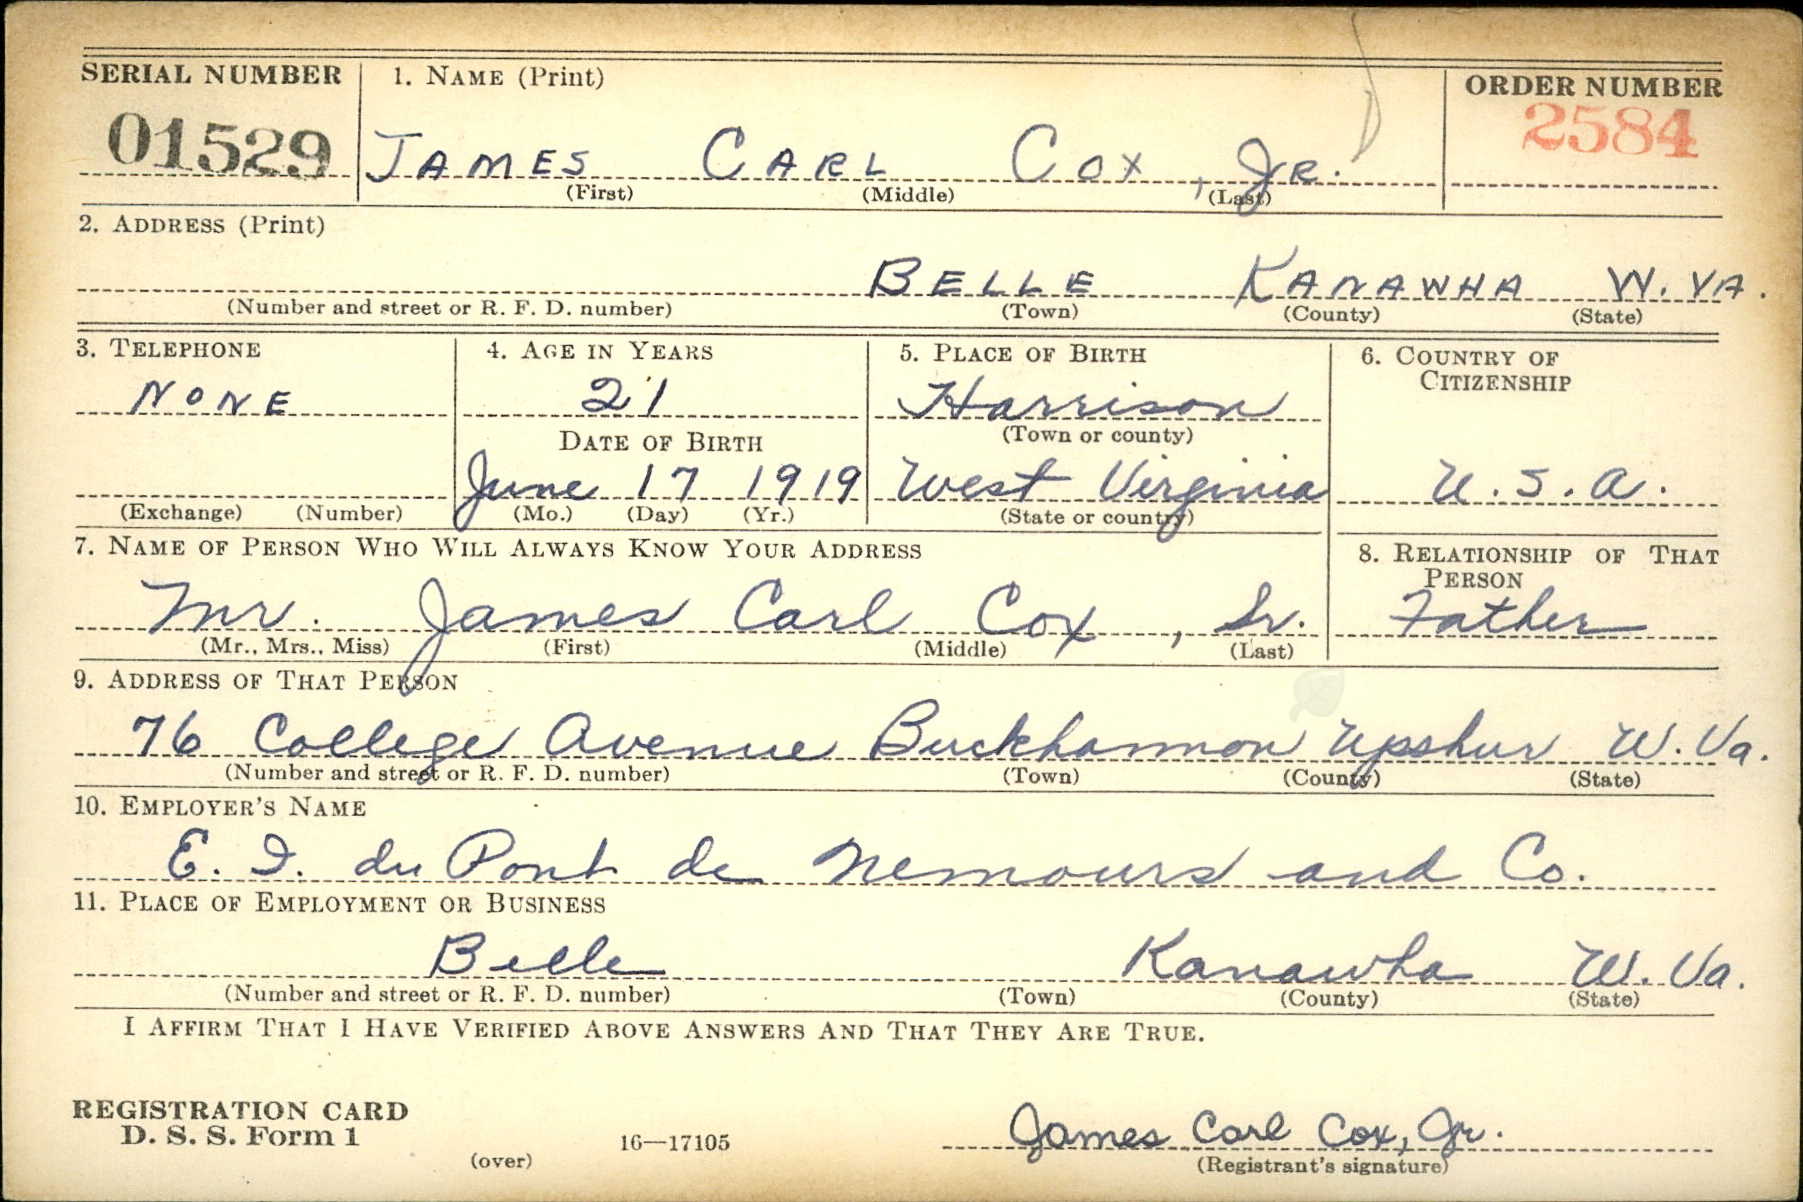 SERIAL NUMBER 1. NAME (Print) ORDER NUMBER
01529 JAMES CARL COX, JR. 2584
(First) (Middle) (Last)
2. ADDRESS (Print)
BELLE KANAWHA W. VA.
(Number and street or R. F. D. number) (Town) (County) (State)
3. TELEPHONE 4. AGE IN YEARS 5. PLACE OF BIRTH 6. COUNTRY OF
CITIZENSHIP
NONE 21 Harrison
DATE OF BIRTH (Town or county)
June 17 1919 West Virginia U.S.A.
(Exchange) (Number) (Mo.) (Day) (Yr.) (State or country)
7. NAME OF PERSON WHO WILL ALWAYS KNOW YOUR ADDRESS 8. RELATIONSHIP OF THAT
PERSON
Mr. James Carl Cox, Sr. Father
(Mr., Mrs., Miss) (First) (Middle) (Last)
9. ADDRESS OF THAT PERSON
76 College Avenue Buckhannon Upshur W. Va.
(Number and street or R. F. D. number) (Town) (County) (State)
10. EMPLOYER'S NAME
E. I. du Pont de Nemours and Co.
11. PLACE OF EMPLOYMENT OR BUSINESS
Belle Kanawha W. Va.
(Number and street or R. F. D. number) (Town) (County) (State)
I AFFIRM THAT I HAVE VERIFIED ABOVE ANSWERS AND THAT THEY ARE TRUE.
REGISTRATION CARD
D. S. S. Form 1 16—17105 James Carl Cox, Jr.
(over) (Registrant's signature)